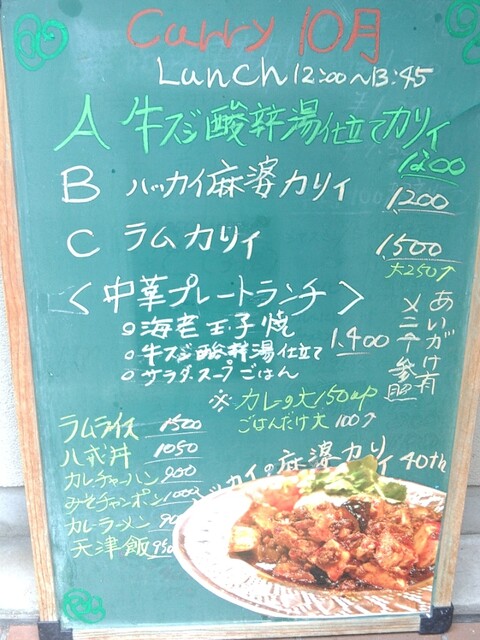 Curry 10月
Lunch 12:00〜13:45
A 牛スジ酸辣湯仕立てカリイ
1200
B ハッカイ麻婆カリイ 1200
C ラムカリイ 1500
大250↑
<中華プレートランチ>
○海老玉子焼
○牛スジ酸辣湯仕立て
○サラダスープごはん
1,400
あいがけ有
メニュー参照
※カレーの大150up
ごはんだけ大 100↑
ラムライス 1500
八戒丼 1050
カレーチャーハン 900
みそチャンポン 1000
カレーラーメン 90
天津飯 950
ハッカイの麻婆カリイ 40th